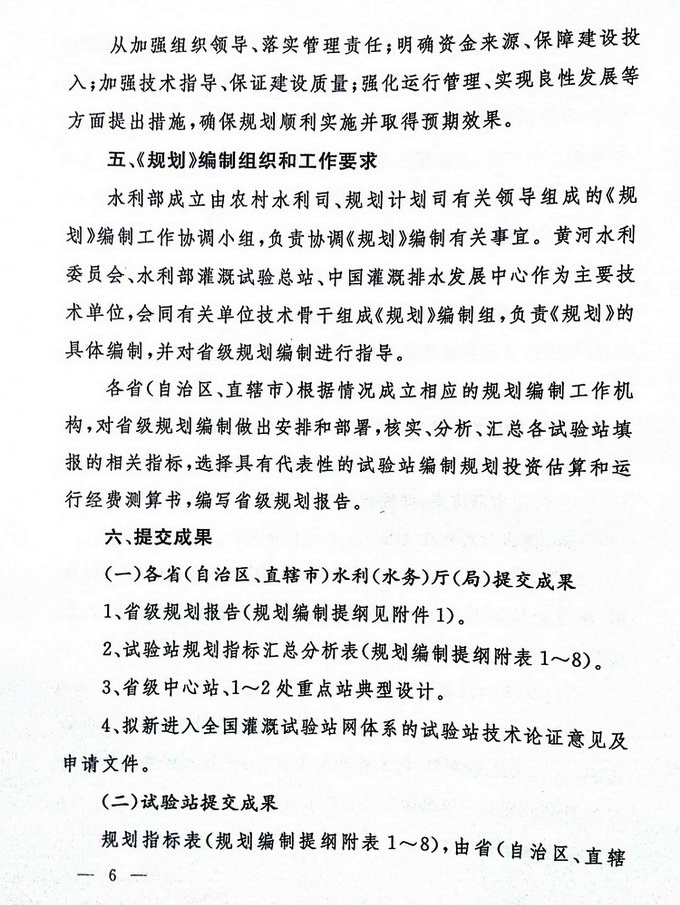 从加强组织领导、落实管理责任；明确资金来源、保障建设投
入；加强技术指导、保证建设质量；强化运行管理、实现良性发展等
方面提出措施，确保规划顺利实施并取得预期效果。
五、《规划》编制组织和工作要求
水利部成立由农村水利司、规划计划司有关领导组成的《规
划》编制工作协调小组，负责协调《规划》编制有关事宜。黄河水利
委员会、水利部灌溉试验总站、中国灌溉排水发展中心作为主要技
术单位，会同有关单位技术骨干组成《规划》编制组，负责《规划》的
具体编制，并对省级规划编制进行指导。
各省（自治区、直辖市）根据情况成立相应的规划编制工作机
构，对省级规划编制做出安排和部署，核实、分析、汇总各试验站填
报的相关指标，选择具有代表性的试验站编制规划投资估算和运
行经费测算书，编写省级规划报告。
六、提交成果
（一）各省（自治区、直辖市）水利（水务）厅（局）提交成果
1、省级规划报告（规划编制提纲见附件1）。
2、试验站规划指标汇总分析表（规划编制提纲附表1～8）。
3、省级中心站、1～2处重点站典型设计。
4、拟新进入全国灌溉试验站网体系的试验站技术论证意见及
申请文件。
（二）试验站提交成果
规划指标表（规划编制提纲附表1～8），由省（自治区、直辖
— 6 —